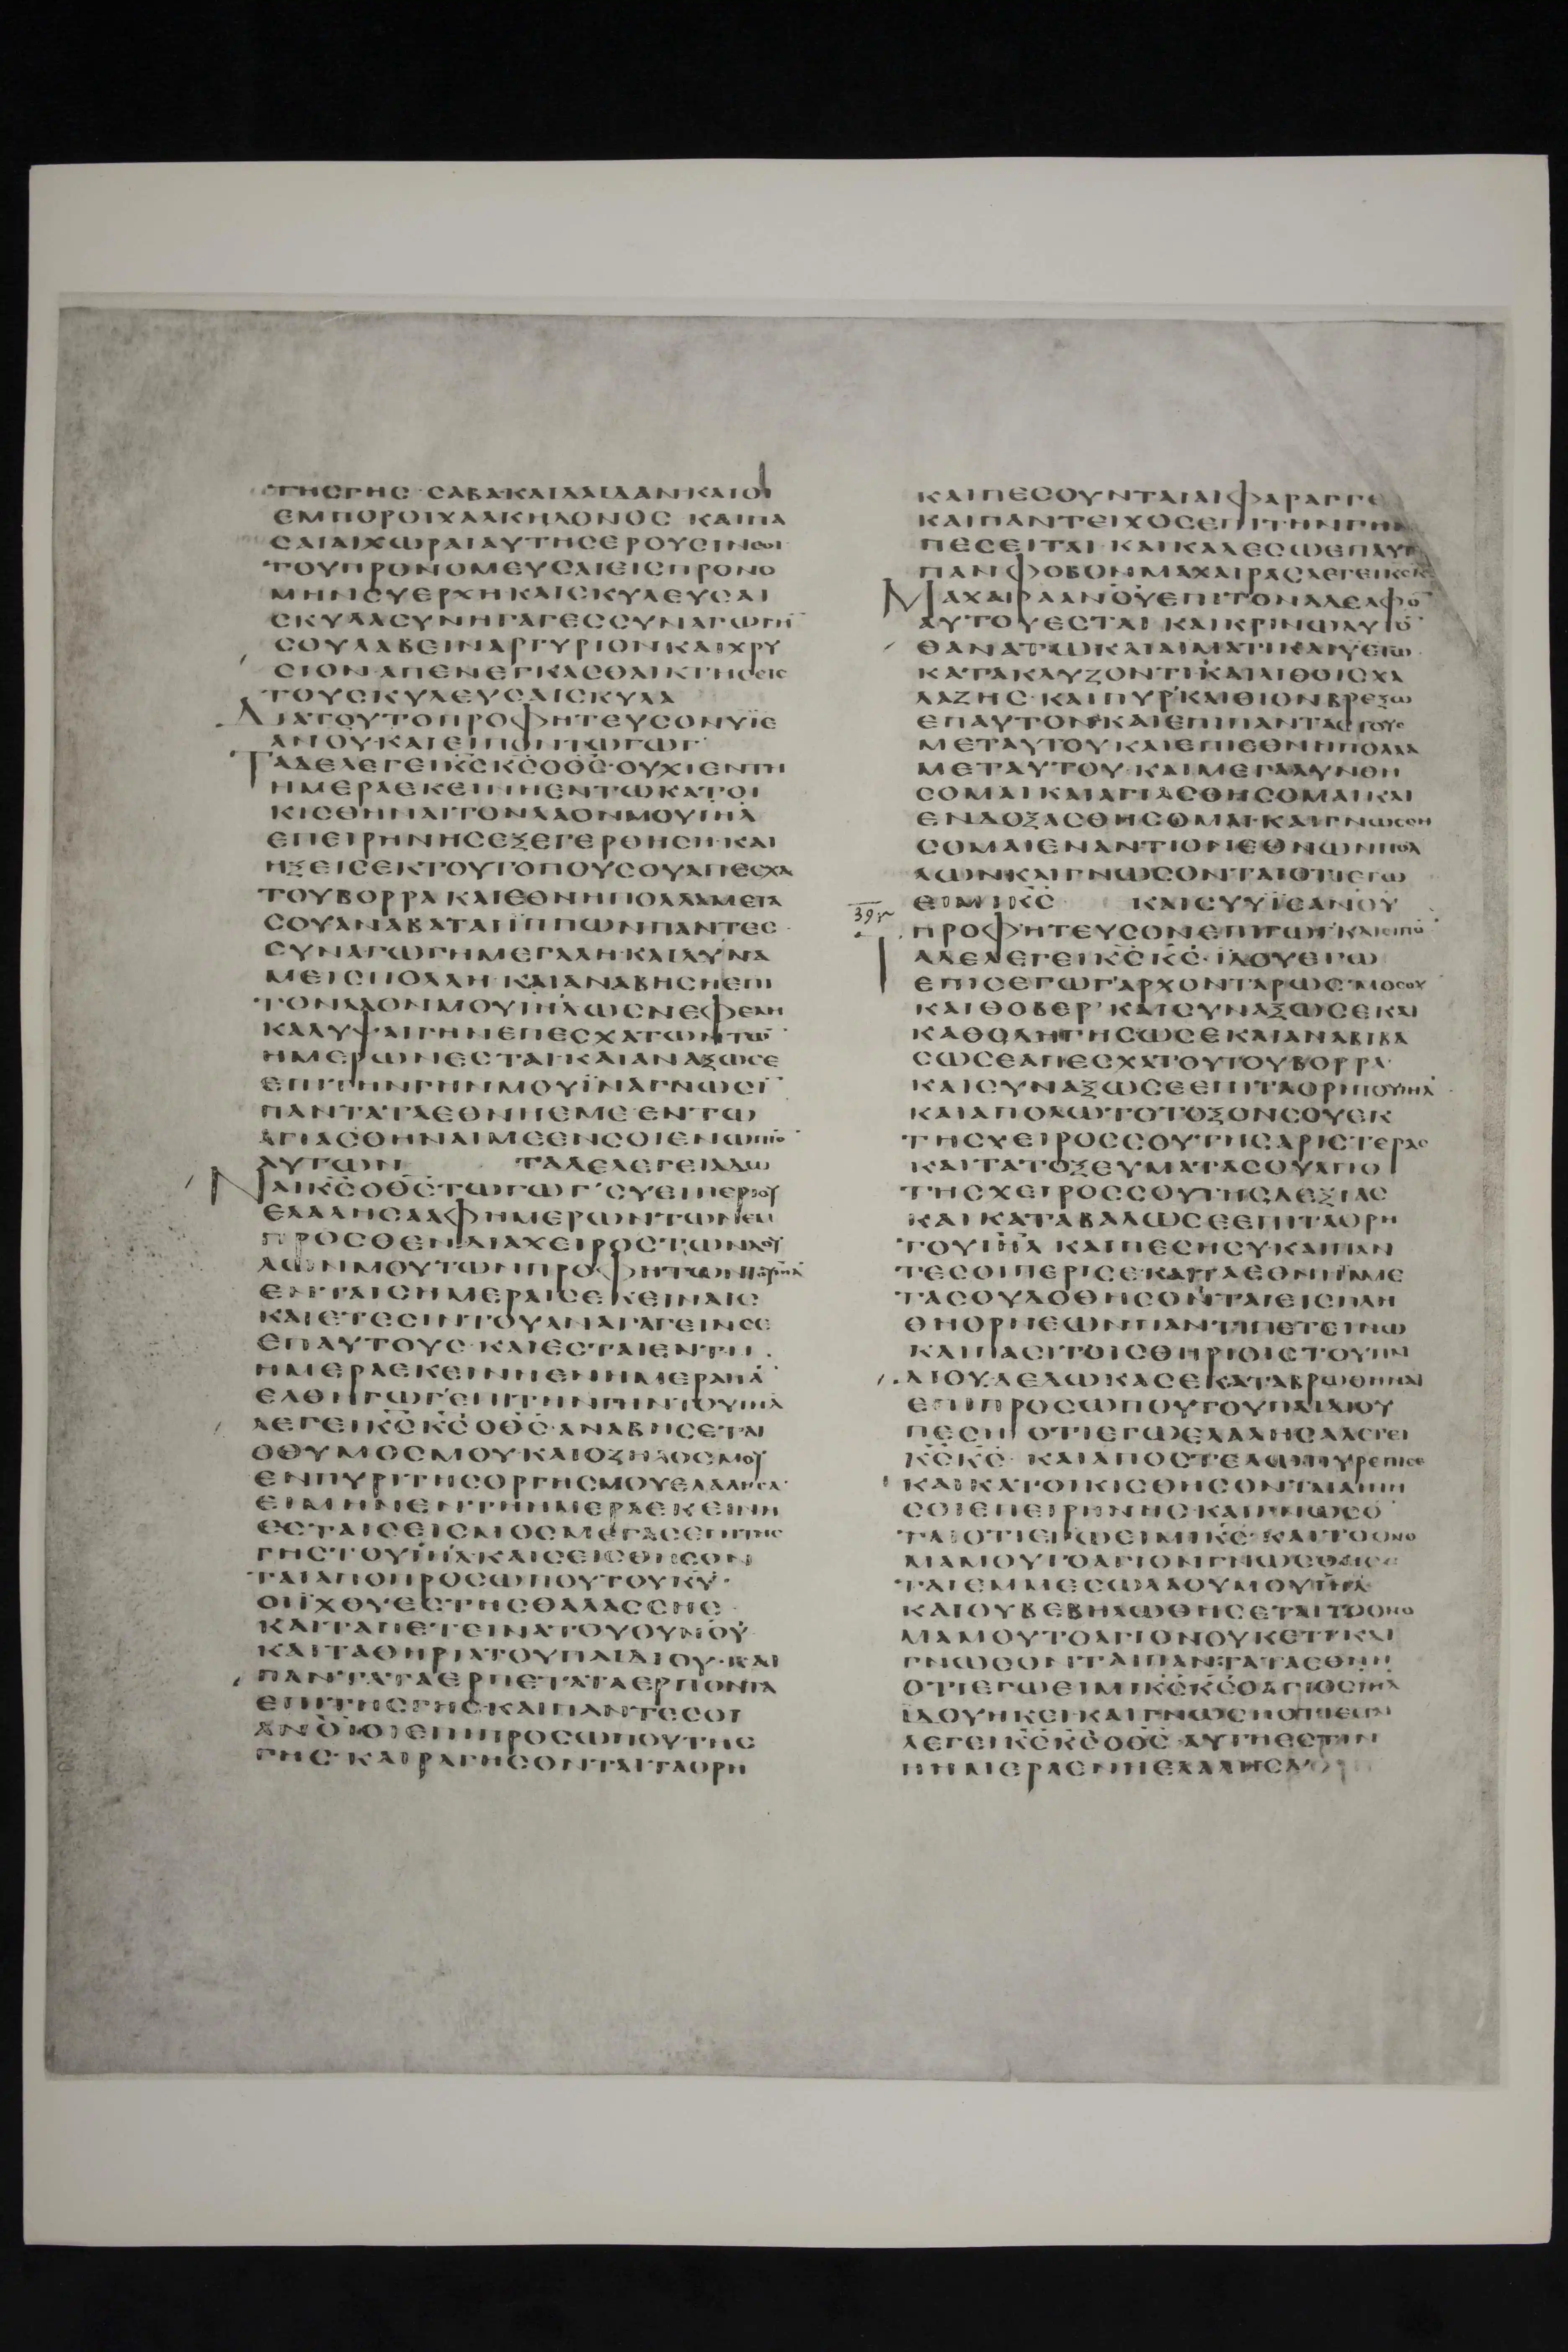 ΤΗϹΓΗϹ · ϹΑΒΑ·ΚΑΙΔΑΙΔΑΝ·ΚΑΙΟΙ
ΕΜΠΟΡΟΙΧΑΛΚΗΔΟΝΟϹ ΚΑΙΠΑ
ϹΑΙΑΙΧΩΡΑΙΑΥΤΗϹΕΡΟΥϹΙΝϹΟΙ
ΤΟΥΠΡΟΝΟΜΕΥϹΑΙΕΙϹΠΡΟΝΟ
ΜΗΝϹΥΕΡΧΗΚΑΙϹΚΥΛΕΥϹΑΙ
ϹΚΥΛΑϹΥΝΗΓΑΓΕϹϹΥΝΑΓΩΓΗ̅
ϹΟΥΛΑΒΕΙΝΑΡΓΥΡΙΟΝΚΑΙΧΡΥ
ϹΙΟΝ·ΑΠΕΝΕΓΚΑϹΘΑΙΚΤΗϹΕΙϹ
ΤΟΥϹΚΥΛΕΥϹΑΙϹΚΥΛΑ
ΔΙΑΤΟΥΤΟΠΡΟΦΗΤΕΥϹΟΝΥΪΕ
ΑΝΟ̅Υ·ΚΑΙΕΙΠΟΝΤΩΓΩΓ·
ΤΑΔΕΛΕΓΕΙΚ̅Ϲ̅Κ̅Ϲ̅Ο̅Θ̅Ϲ̅·ΟΥΧΙΕΝΤΗ
ΗΜΕΡΑΕΚΕΙΝΗΕΝΤΩΚΑΤΟΙ
ΚΙϹΘΗΝΑΙΤΟΝΛΑΟΝΜΟΥΙ̅Η̅Λ̅
ΕΠΕΙΡΗΝΗϹΕΞΕΓΕΡΘΗϹΗ·ΚΑΙ
ΗΞΕΙϹΕΚΤΟΥΤΟΠΟΥϹΟΥΑΠΕϹΧΑ
ΤΟΥΒΟΡΡΑΚΑΙΕΘΝΗΠΟΛΛΑΜΕΤΑ
ϹΟΥΑΝΑΒΑΤΑΙΪΠΠΩΝΠΑΝΤΕϹ·
ϹΥΝΑΓΩΓΗΜΕΓΑΛΗ·ΚΑΙΔΥΝΑ
ΜΕΙϹΠΟΛΛΗ·ΚΑΙΑΝΑΒΗϹΗΕΠΙ
ΤΟΝΛΑΟΝΜΟΥΙ̅Η̅Λ̅ΩϹΝΕΦΕΛΗ
ΚΑΛΥΨΑΙΓΗΝΕΠΕϹΧΑΤΩΝΤΩ̅
ΗΜΕΡΩΝΕϹΤΑΙ·ΚΑΙΑΝΑΞΩϹΕ
ΕΠΙΤΗΝΓΗΝΜΟΥΪΝΑΓΝΩϹΙ̅
ΠΑΝΤΑΤΑΕΘΝΗΕΜΕ·ΕΝΤΩ
ΑΓΙΑϹΘΗΝΑΙΜΕΕΝϹΟΙΕΝΩΠΙΟ̅
ΑΥΤΩΝ ΤΑΔΕΛΕΓΕΙΑΔΩ
ΝΑΙΚ̅Ϲ̅Ο̅Θ̅Ϲ̅ΤΩΓΩΓ·ϹΥΕΙΠΕΡΙΟΥ
ΕΛΑΛΗϹΑΔΦΗΜΕΡΩΝΤΩΝΕΜ
ΠΡΟϹΘΕΝΔΙΑΧΕΙΡΟϹΤΩΝΔΟΥ
ΛΩΝΜΟΥΤΩΝΠΡΟΦΗΤΩΝΤΟΥΙ̅Η̅Λ̅
ΕΝΤΑΙϹΗΜΕΡΑΙϹΕΚΕΙΝΑΙϹ
ΚΑΙΕΤΕϹΙΝΤΟΥΑΝΑΓΑΓΕΙΝϹΕ
ΕΠΑΥΤΟΥϹ·ΚΑΙΕϹΤΑΙΕΝΤΗ
ΗΜΕΡΑΕΚΕΙΝΗΕΝΗΜΕΡΑΗΑ̅
ΕΛΘΗΓΩΓΕΠΙΤΗΝΓΗΝΤΟΥΙ̅Η̅Λ̅
ΛΕΓΕΙΚ̅Ϲ̅Κ̅Ϲ̅Ο̅Θ̅Ϲ̅·ΑΝΑΒΗϹΕΤΑΙ
ΟΘΥΜΟϹΜΟΥΚΑΙΟΖΗΛΟϹΜΟΥ
ΕΝΠΥΡΙΤΗϹΟΡΓΗϹΜΟΥΕΛΑΛΗϹΑ·
ΕΙΜΗΝΕΝΤΗΗΜΕΡΑΕΚΕΙΝΗ
ΕϹΤΑΙϹΕΙϹΜΟϹΜΕΓΑϹΕΠΙΤΗϹ
ΓΗϹΤΟΥΙ̅Η̅Λ̅·ΚΑΙϹΕΙϹΘΗϹΟΝ
ΤΑΙΑΠΟΠΡΟϹΩΠΟΥΤΟΥΚ̅Υ̅·
ΟΙΪΧΘΥΕϹΤΗϹΘΑΛΑϹϹΗϹ
ΚΑΙΤΑΠΕΤΕΙΝΑΤΟΥΟΥΝΟ̅Υ̅
ΚΑΙΤΑΘΗΡΙΑΤΟΥΠΑΙΔΙΟΥ·ΚΑΙ
ΠΑΝΤΑΤΑΕΡΠΕΤΑΤΑΕΡΠΟΝΤΑ
ΕΠΙΤΗϹΓΗϹ·ΚΑΙΠΑΝΤΕϹΟΙ
ΑΝΟ̅ΙΟΙΕΠΙΠΡΟϹΩΠΟΥΤΗϹ
ΓΗϹ·ΚΑΙΡΑΓΗϹΟΝΤΑΙΤΑΟΡΗ
ΚΑΙΠΕϹΟΥΝΤΑΙΑΙΦΑΡΑΓΓΕ
ΚΑΙΠΑΝΤΕΙΧΟϹΕΠΙΤΗΝΓΗΝ
ΠΕϹΕΙΤΑΙ·ΚΑΙΚΑΛΕϹΩΕΠΑΥΤ
ΠΑΝΦΟΒΟΝΜΑΧΑΙΡΑϹΛΕΓΕΙΚ̅Ϲ̅Κ̅Ϲ̅
ΜΑΧΑΙΡΑΑΝΟ̅ΥΕΠΙΤΟΝΑΔΕΛΦΟ̅
ΑΥΤΟΥΕϹΤΑΙ·ΚΑΙΚΡΙΝΩΑΥΤΟ̅
ΘΑΝΑΤΩΚΑΙΑΙΜΑΤΙΚΑΙΥΕΤΩ
ΚΑΤΑΚΛΥΖΟΝΤΙ·ΚΑΙΛΙΘΟΙϹΧΑ
ΛΑΖΗϹ·ΚΑΙΠΥΡΚΑΙΘΙΟΝΒΡΕΞΩ
ΕΠΑΥΤΟΝ·ΚΑΙΕΠΙΠΑΝΤΑϹΤΟΥϹ
ΜΕΤΑΥΤΟΥ·ΚΑΙΕΠΙΕΘΝΗΠΟΛΛΑ
ΜΕΤΑΥΤΟΥ·ΚΑΙΜΕΓΑΛΥΝΘΗ
ϹΟΜΑΙΚΑΙΑΓΙΑϹΘΗϹΟΜΑΙΚΑΙ
ΕΝΔΟΞΑϹΘΗϹΟΜΑΙ·ΚΑΙΓΝΩϹΘΗ
ϹΟΜΑΙΕΝΑΝΤΙΟΝΕΘΝΩΝΠΟΛ
ΛΩΝΚΑΙΓΝΩϹΟΝΤΑΙΟΤΙΕΓΩ
ΕΙΜΙΚ̅Ϲ̅ ΚΑΙϹΥΥΪΕΑΝΟ̅Υ
39ν
ΠΡΟΦΗΤΕΥϹΟΝΕΠΙΓΩΓ·ΚΑΙΕΙΠΟ̅
ΤΑΔΕΛΕΓΕΙΚ̅Ϲ̅Κ̅Ϲ̅·ΪΔΟΥΕΓΩ
ΕΠΙϹΕΓΩΓΑΡΧΟΝΤΑΡΩϹ·ΜΟϹΟΧ
ΚΑΙΘΟΒΕΡ·ΚΑΙϹΥΝΑΞΩϹΕΚΑΙ
ΚΑΘΟΔΗΓΗϹΩϹΕΚΑΙΑΝΑΒΙΒΑ
ϹΩϹΕΑΠΕϹΧΑΤΟΥΤΟΥΒΟΡΡΑ·
ΚΑΙϹΥΝΑΞΩϹΕΕΠΙΤΑΟΡΗΤΟΥΙ̅Η̅Λ̅
ΚΑΙΑΠΟΛΩΤΟΤΟΞΟΝϹΟΥΕΚ
ΤΗϹΧΕΙΡΟϹϹΟΥΤΗϹΑΡΙϹΤΕΡΑϹ
ΚΑΙΤΑΤΟΞΕΥΜΑΤΑϹΟΥΑΠΟ
ΤΗϹΧΕΙΡΟϹϹΟΥΤΗϹΔΕΞΙΑϹ
ΚΑΙΚΑΤΑΒΑΛΩϹΕΕΠΙΤΑΟΡΗ
ΤΟΥΙ̅Η̅Λ̅ ΚΑΙΠΕϹΗϹΥ·ΚΑΙΠΑΝ
ΤΕϹΟΙΠΕΡΙϹΕ·ΚΑΙΤΑΕΘΝΗΤΑΜΕ
ΤΑϹΟΥΔΟΘΗϹΟΝΤΑΙΕΙϹΠΛΗ
ΘΗΟΡΝΕΩΝΠΑΝΤΙΠΕΤΕΙΝΩ
ΚΑΙΠΑϹΙΤΟΙϹΘΗΡΙΟΙϹΤΟΥΠΗ
ΔΙΟΥ·ΔΕΔΩΚΑϹΕΚΑΤΑΒΡΩΘΗΝΑΙ
ΕΠΙΠΡΟϹΩΠΟΥΤΟΥΠΑΙΔΙΟΥ
ΠΕϹΗ ΟΤΙΕΓΩΕΛΑΛΗϹΑΛΕΓΕΙ
Κ̅Ϲ̅Κ̅Ϲ̅·ΚΑΙΑΠΟϹΤΕΛΩΠΥΡΕΠΙϹΕ
ΚΑΙΚΑΤΟΙΚΙϹΘΗϹΟΝΤΑΙΑΙΝΗ
ϹΟΙΕΠΕΙΡΗΝΗϹ·ΚΑΙΓΝΩϹΟ̅
ΤΑΙΟΤΙΕΓΩΕΙΜΙΚ̅Ϲ̅·ΚΑΙΤΟΟΝΟ
ΜΑΜΟΥΤΟΑΓΙΟΝΓΝΩϹΘΗϹΕ
ΤΑΙΕΜΜΕϹΩΛΑΟΥΜΟΥΙ̅Η̅Λ̅·
ΚΑΙΟΥΒΕΒΗΛΩΘΗϹΕΤΑΙΤΟΟΝΟ
ΜΑΜΟΥΤΟΑΓΙΟΝΟΥΚΕΤΙ·ΚΑΙ
ΓΝΩϹΟΝΤΑΙΠΑΝΤΑΤΑΕΘΝΗ
ΟΤΙΕΓΩΕΙΜΙΚ̅Ϲ̅Κ̅Ϲ̅ΟΑΓΙΟϹΙ̅Η̅Λ̅
ΪΔΟΥΗΚΕΙ·ΚΑΙΓΝΩϹΗΟΤΙΕϹΤΑΙ
ΛΕΓΕΙΚ̅Ϲ̅Κ̅Ϲ̅Ο̅Θ̅Ϲ̅·ΑΥΤΗΕϹΤΙΝ
ΗΗΜΕΡΑΕΝΗΕΛΑΛΗϹΑ